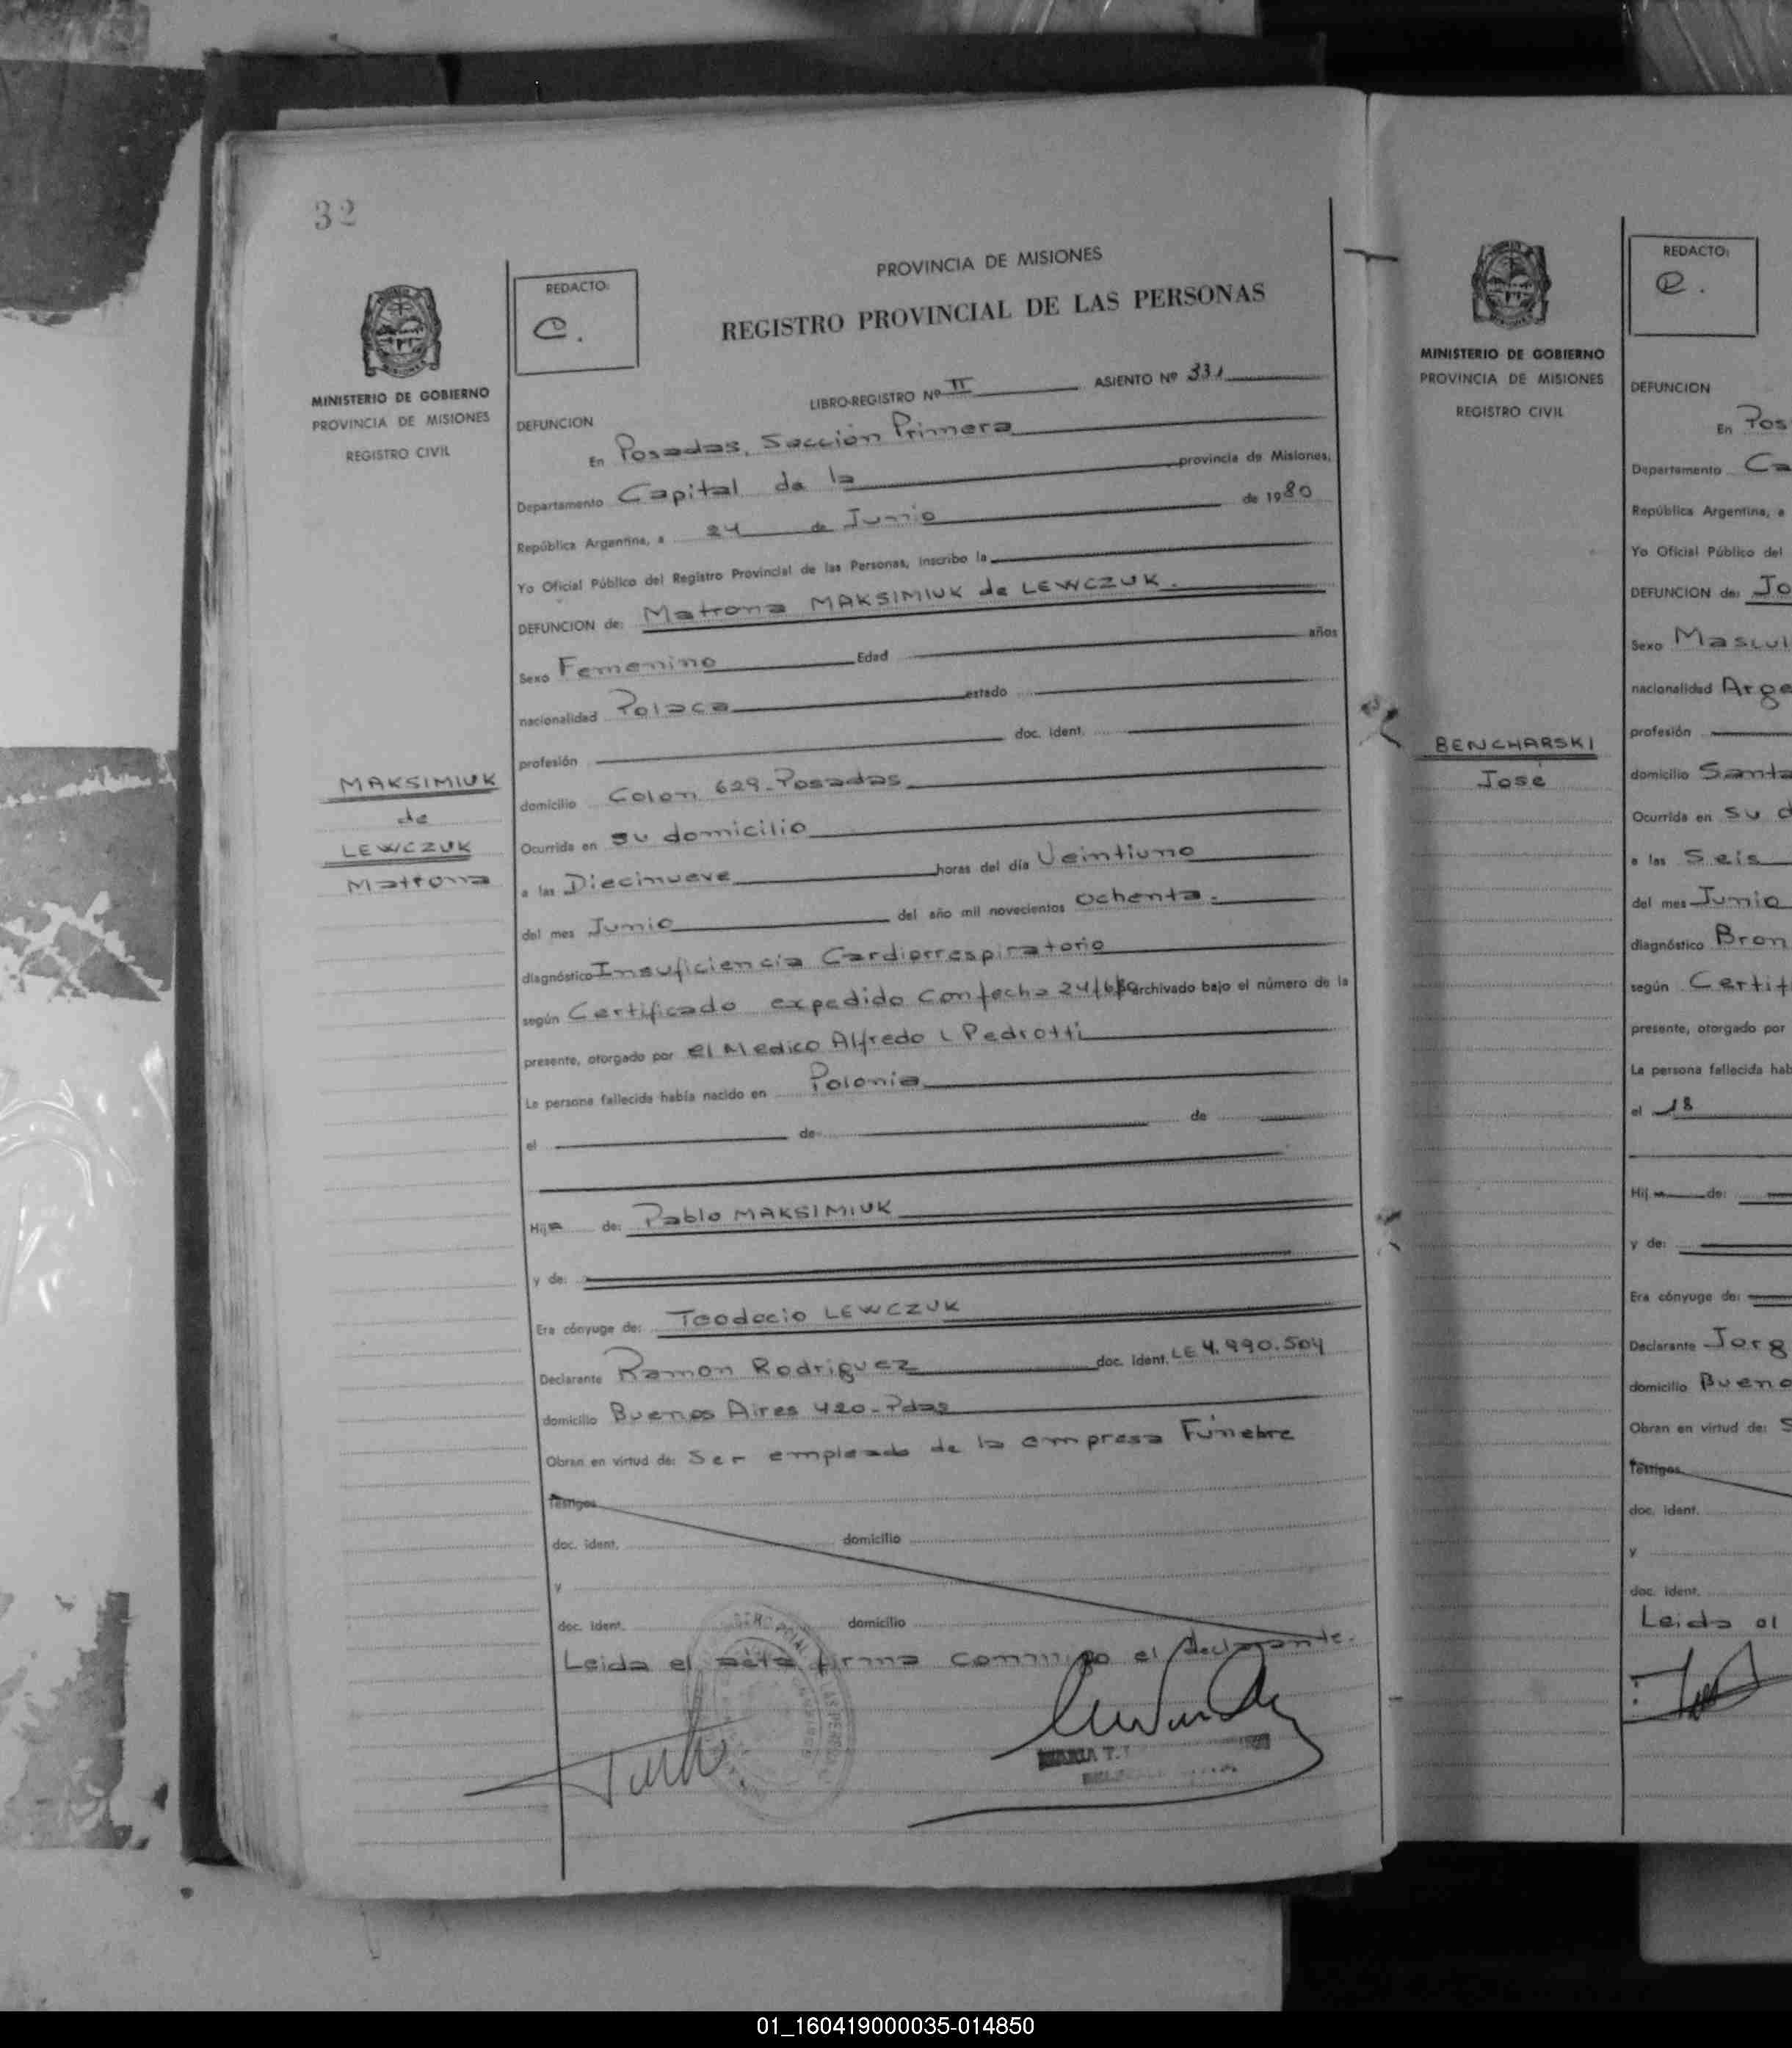 32
REDACTO:
C.
PROVINCIA DE MISIONES
REGISTRO PROVINCIAL DE LAS PERSONAS
MINISTERIO DE GOBIERNO
PROVINCIA DE MISIONES
REGISTRO CIVIL
LIBRO-REGISTRO Nº II ASIENTO Nº 331
DEFUNCION
En Posadas, Sección Primera
Departamento Capital de la provincia de Misiones,
República Argentina, a 24 de Junio de 1980
Yo Oficial Público del Registro Provincial de las Personas, inscribo la
DEFUNCION de: Matrona MAKSIMIUK de LEWCZUK.
Sexo Femenino Edad años
nacionalidad Polaca estado
profesión doc. ident.
MAKSIMIUK
de
LEWCZUK
Matrona
domicilio Colon 629-Posadas
Ocurrida en su domicilio
a las Diecinueve horas del día Veintiuno
del mes Junio del año mil novecientos ochenta.
diagnóstico Insuficiencia Cardiorrespiratorio
según Certificado expedido con fecha 24/6/80 archivado bajo el número de la
presente, otorgado por el Medico Alfredo L Pedrotti
La persona fallecida había nacido en Polonia
el de de
Hija de: Pablo MAKSIMIUK
y de:
Era cónyuge de: Teodocio LEWCZUK
Declarante Ramon Rodriguez doc. ident. LE 4.990.504
domicilio Buenos Aires 420-Pdas
Obran en virtud de: Ser empleado de la empresa Fúnebre
Testigos
doc. ident. domicilio
y
doc. ident. domicilio
Leida el acta firma conmigo el declarante.
MARIA T.
REDACTO:
C.
MINISTERIO DE GOBIERNO
PROVINCIA DE MISIONES
REGISTRO CIVIL
DEFUNCION
En Pos
Departamento Ca
República Argentina, a
Yo Oficial Público del
DEFUNCION de: Jo
Sexo Mascul
nacionalidad Arge
profesión
BENCHARSKI
José
domicilio Santa
Ocurrida en su d
a las Seis
del mes Junio
diagnóstico Bron
según Certif
presente, otorgado por
La persona fallecida hab
el 18
Hij de:
y de:
Era cónyuge de:
Declarante Jorg
domicilio Bueno
Obran en virtud de: S
Testigos
doc. ident.
y
doc. ident.
Leida el
01_160419000035-014850